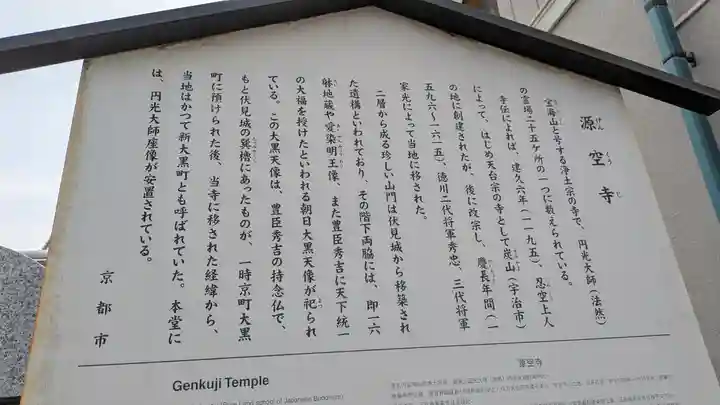 源空寺
げんくうじ
宝海山と号する浄土宗の寺で、円光大師(法然)
の霊場二十五ケ所の一つに数えられている。
寺伝によれば、建久六年(一一九五)、忍空上人
によって、はじめ天台宗の寺として炭山(宇治市)
の地に創建されたが、後に改宗し、慶長年間(一
五九六~一六一五)、徳川二代将軍秀忠、三代将軍
家光によって当地に移された。
二層から成る珍しい山門は伏見城から移築され
た遺構といわれており、その階下両脇には、即一六
躰地蔵や愛染明王像、また豊臣秀吉に天下統一
の大福を授けたといわれる朝日大黒天像が祀られ
ている。この大黒天像は、豊臣秀吉の持念仏で、
もと伏見城の巽櫓にあったものが、一時京町大黒
町に預けられた後、当寺に移された経緯から、
当地はかつて新大黒町とも呼ばれていた。本堂に
は、円光大師座像が安置されている。
京都市
Genkuji Temple
源空寺